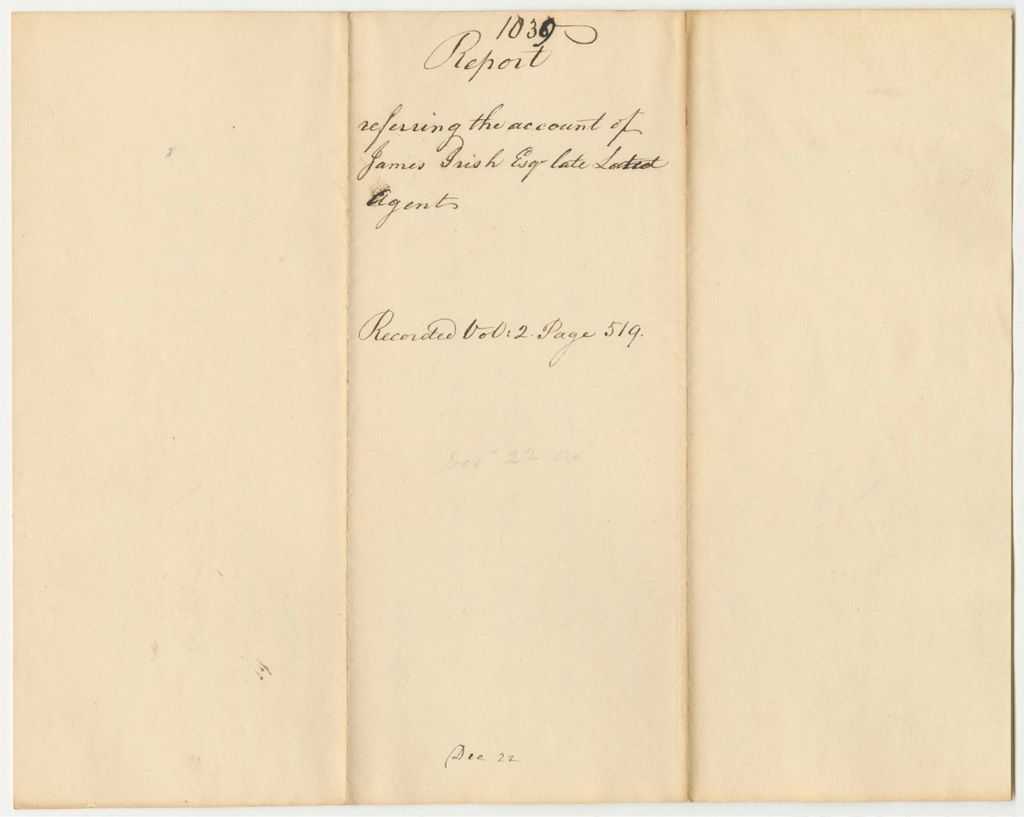 1039
Report
referring the account of
James Irish Esqr late Land
Agent
Recorded Vol: 2. Page 519.
Dec 22
Dec 22